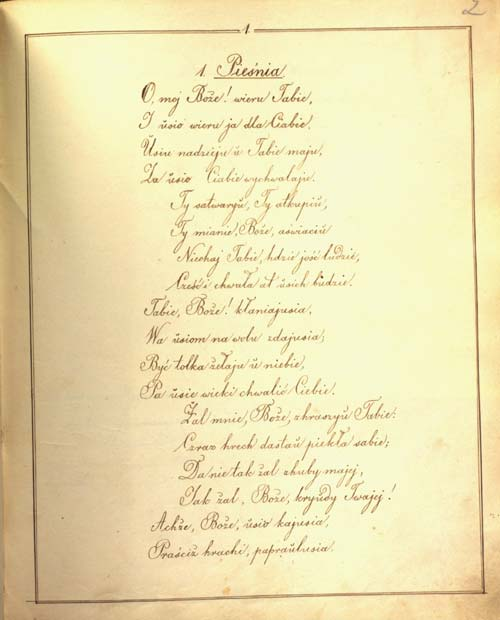 2
1.
1. Pieśnia
O, moj Bože! wieru Tabie,
I ŭsio wieru ja dla Ciabie,
Ŭsiu nadzieju ŭ Tabie maju,
Za ŭsio Ciabie wychwalaju.
Ty satwaryŭ, Ty atkupiŭ,
Ty mianie, Boże, aświaciŭ
Niechaj Tabie, hdzie jość ludzie,
Cześć i chwała at ŭsich budzie.
Tabie, Boże! kłaniajusia,
Wa ŭsiom na wolu zdajusia;
Być tolka żełaju ŭ niebie,
Pa ŭsie wieki chwalić Ciebie.
Żal mnie, Boże, zhraszyŭ Tabie:
Czraz hrech dastaŭ piekła sabie;
Da nie tak żal zhuby majej,
Jak żal, Boże, kryŭdy Twajej!
Achże, Boże, ŭsio kajusia,
Praściż hrachi, papraŭlusia.